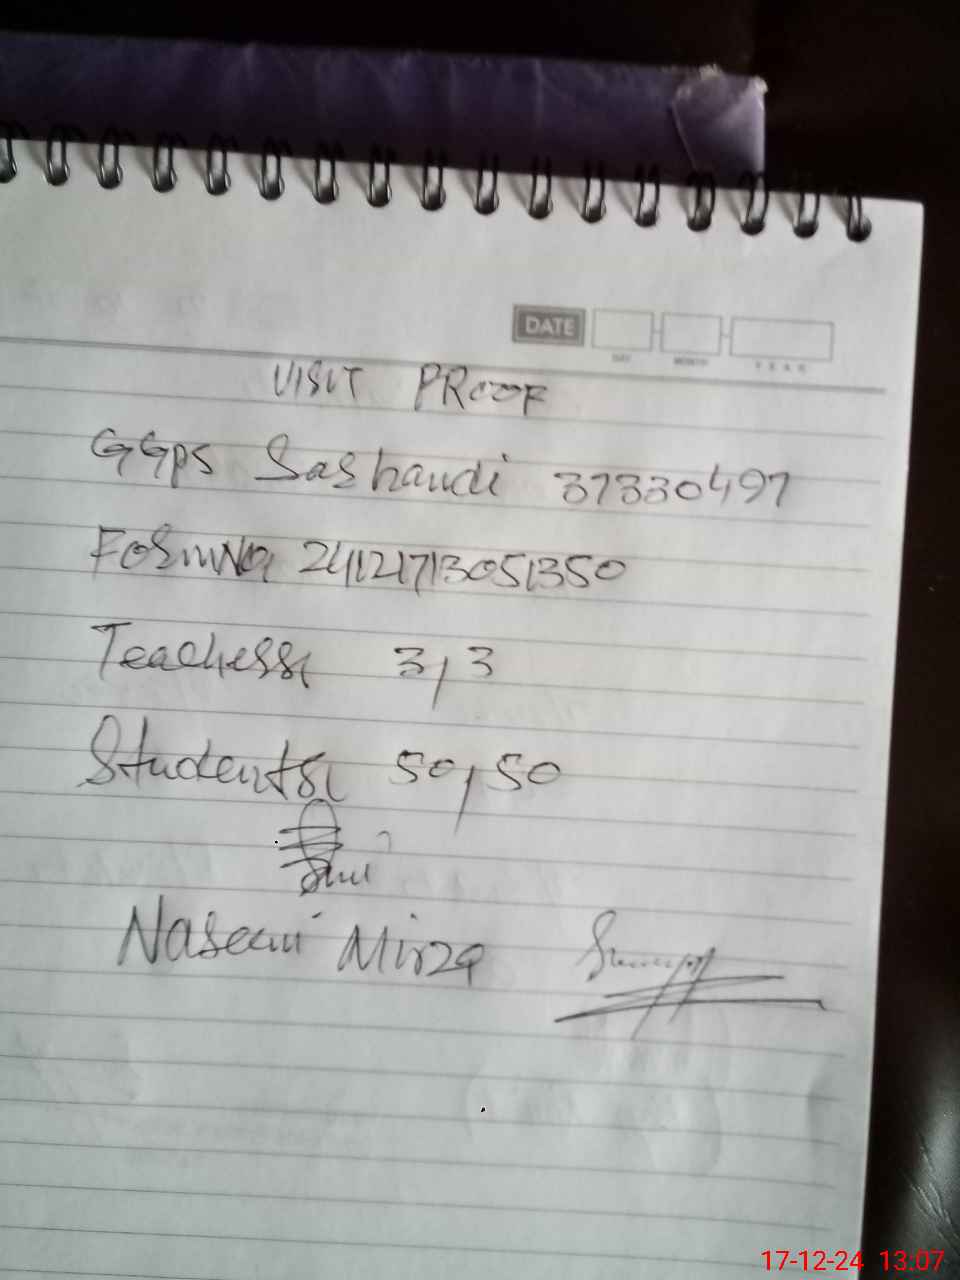 DATE
DAY MONTH YEAR
VISIT PROOF
GGPS Sarhandi 37330497
Form No, 24121713051350
Teachers, 3, 3
Students, 50, 50
Naseem Mirza
17-12-24 13:07